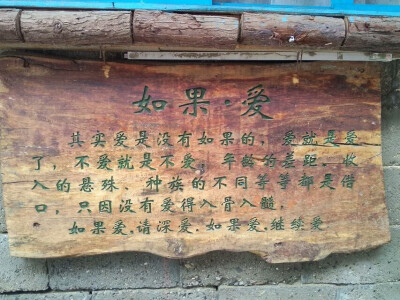 如果·爱
其实爱是没有如果的，爱就是爱
了，不爱就是不爱；年龄的差距、收
入的悬殊、种族的不同等等都是借
口，只因没有爱得入骨入髓。
如果爱，请深爱，如果爱，继续爱